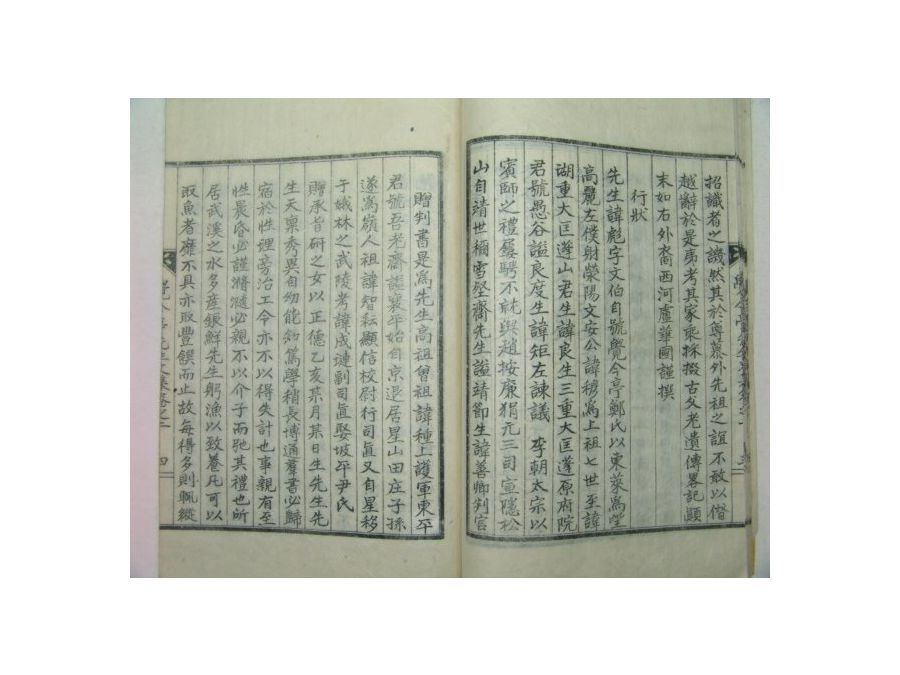 招譏者之譏然其於尊慕外先祖之誼不敢以僭
越辭於是弗考其家乘採掇古父老遺傳畧記顚
末如右外裔西河盧華國謹撰
行狀
先生諱彪字文伯自號覺今亭鄭氏以東萊爲望
高麗左僕射榮陽文安公諱穆爲上祖七世至諱
湖重大匡蓬山君生諱良生三重大匡蓬原府院
君號愚谷謚良度生諱矩左諫議 李朝太宗以
賓師之禮屢騁不就與趙按廉狷元三司宣隱松
山自靖世稱雪壑齋先生謚靖節生諱善卿判官
贈判書是爲先生高祖曾祖諱種上護軍東平
君號吾老齋謚襄平始自京退居星山田庄子孫
遂爲嶺人祖諱智耘顯信校尉行司直又自星移
于娥林之武陵考諱成漣副司直娶坡平尹氏
贈承旨硏之女以正德乙亥某月某日生先生先
生天稟秀異自幼能知篤學稍長博通羣書必歸
宿於性理旁治工令亦不以得失計也事親有至
性晨昏必謹滫瀡必親不以介子而弛其禮也所
居武溪之水多産銀鮮先生躬漁以致養凡可以
取魚者靡不具亦取豐饌而止故每得多則輒縱